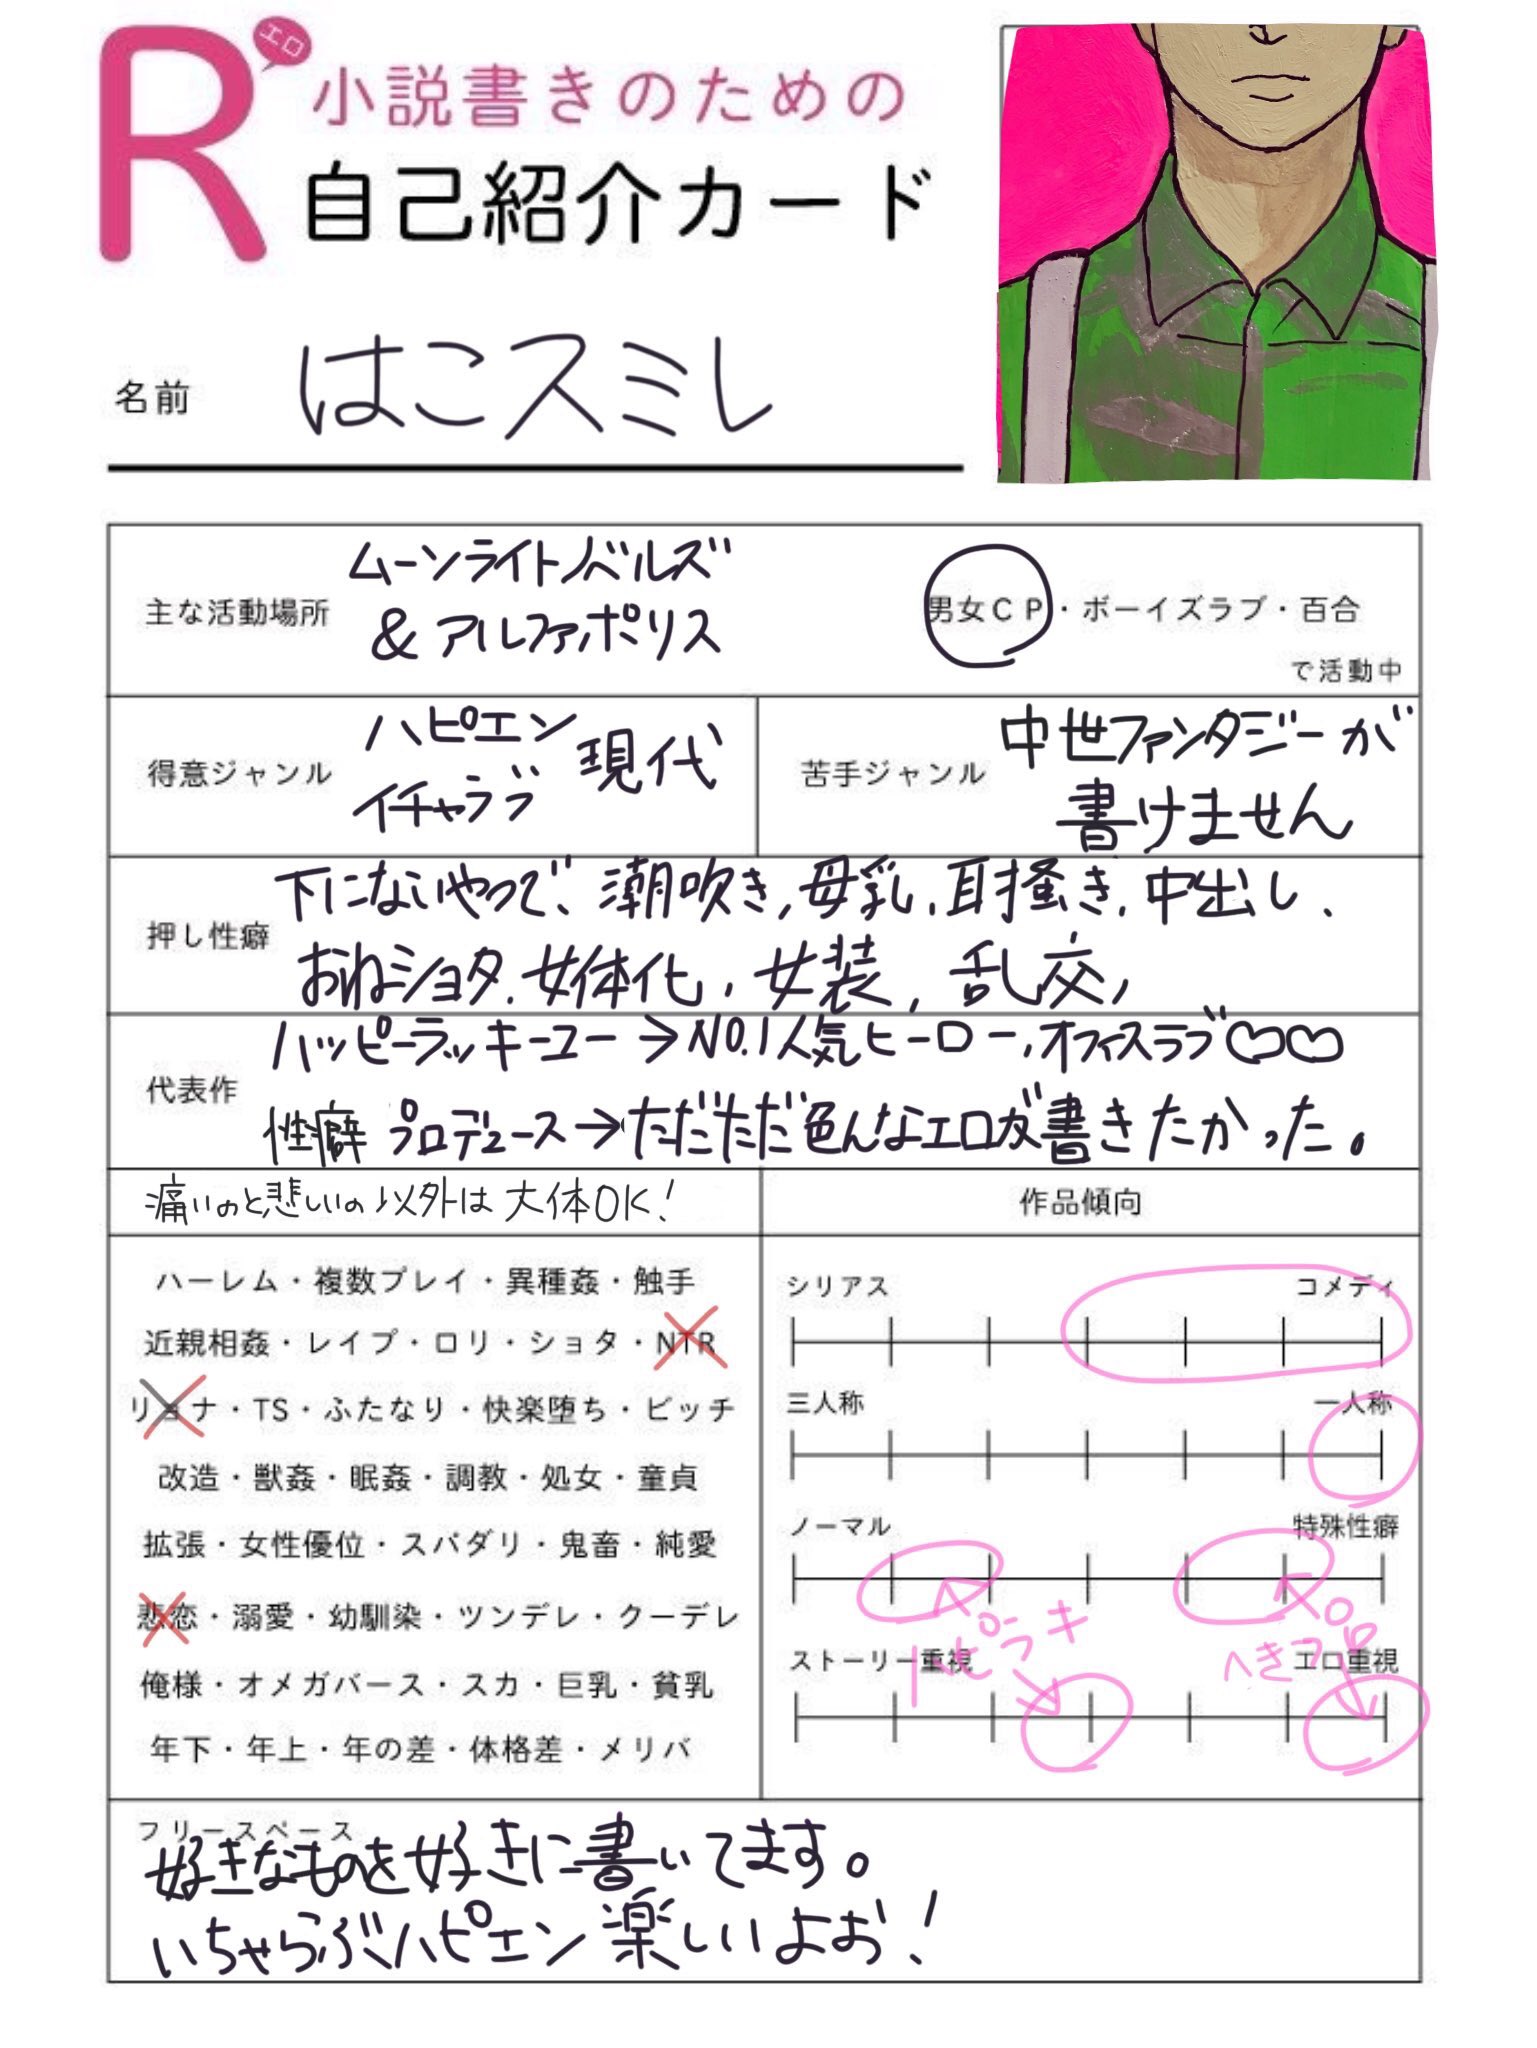 R エロ
小説書きのための
自己紹介カード
名前 はこスミレ
主な活動場所 ムーンライトノベルズ
&アルファポリス
男女CP・ボーイズラブ・百合
で活動中
得意ジャンル ハピエン 現代
イチャラブ
苦手ジャンル 中世ファンタジーが
書けません
押し性癖 下にないやつで、潮吹き,母乳,耳掻き,中出し、
おねショタ.女体化,女装,乱交,
代表作 ハッピーラッキーユー→NO.1人気ヒーロー,オフィスラブ♡♡
性癖プロデュース→ただただ色んなエロが書きたかった。
痛いのと悲しいの以外は大体OK!
ハーレム・複数プレイ・異種姦・触手
近親相姦・レイプ・ロリ・ショタ・NTR
リョナ・TS・ふたなり・快楽堕ち・ビッチ
改造・獣姦・眠姦・調教・処女・童貞
拡張・女性優位・スパダリ・鬼畜・純愛
悲恋・溺愛・幼馴染・ツンデレ・クーデレ
俺様・オメガバース・スカ・巨乳・貧乳
年下・年上・年の差・体格差・メリバ
作品傾向
シリアス コメディ
三人称 一人称
ノーマル 特殊性癖
ハピラキ へきプロ
ストーリー重視 エロ重視
フリースペース
好きなものを好きに書いてます。
いちゃらぶハピエン楽しいよお!